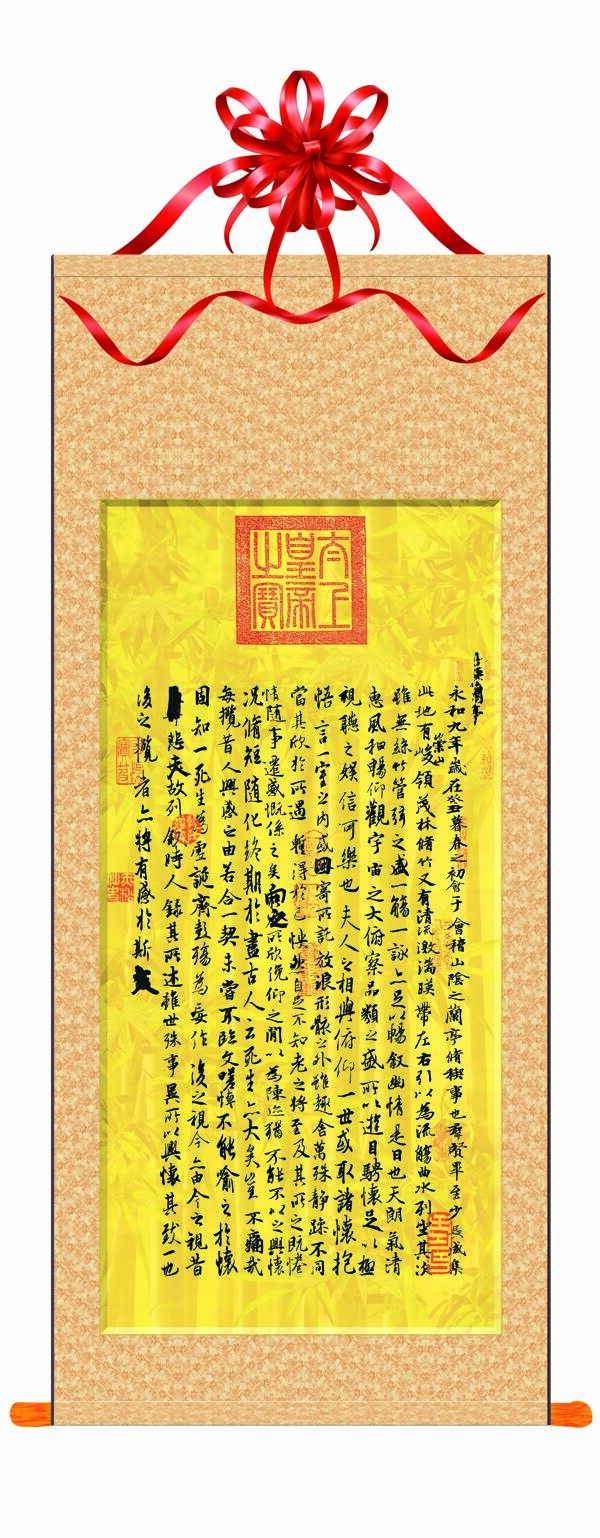 太上
皇帝
之寶
永和九年歲在癸丑暮春之初會于會稽山陰之蘭亭脩稧事也羣賢畢至少長咸集
此地有崇山峻領茂林脩竹又有清流激湍暎帶左右引以為流觴曲水列坐其次
雖無絲竹管弦之盛一觴一詠亦足以暢叙幽情是日也天朗氣清
惠風和暢仰觀宇宙之大俯察品類之盛所以遊目騁懷足以極
視聽之娛信可樂也夫人之相與俯仰一世或取諸懷抱
悟言一室之內或因寄所託放浪形骸之外雖趣舍萬殊靜躁不同
當其欣於所遇暫得於己怏然自足不知老之將至及其所之既惓
情隨事遷感慨係之矣向之所欣俛仰之閒以為陳迹猶不能不以之興懷
況脩短隨化終期於盡古人云死生亦大矣豈不痛哉
每攬昔人興感之由若合一契未嘗不臨文嗟悼不能喻之於懷
固知一死生為虛誕齊彭殤為妄作後之視今亦由今之視昔
悲夫故列叙時人錄其所述雖世殊事異所以興懷其致一也
後之攬者亦將有感於斯文